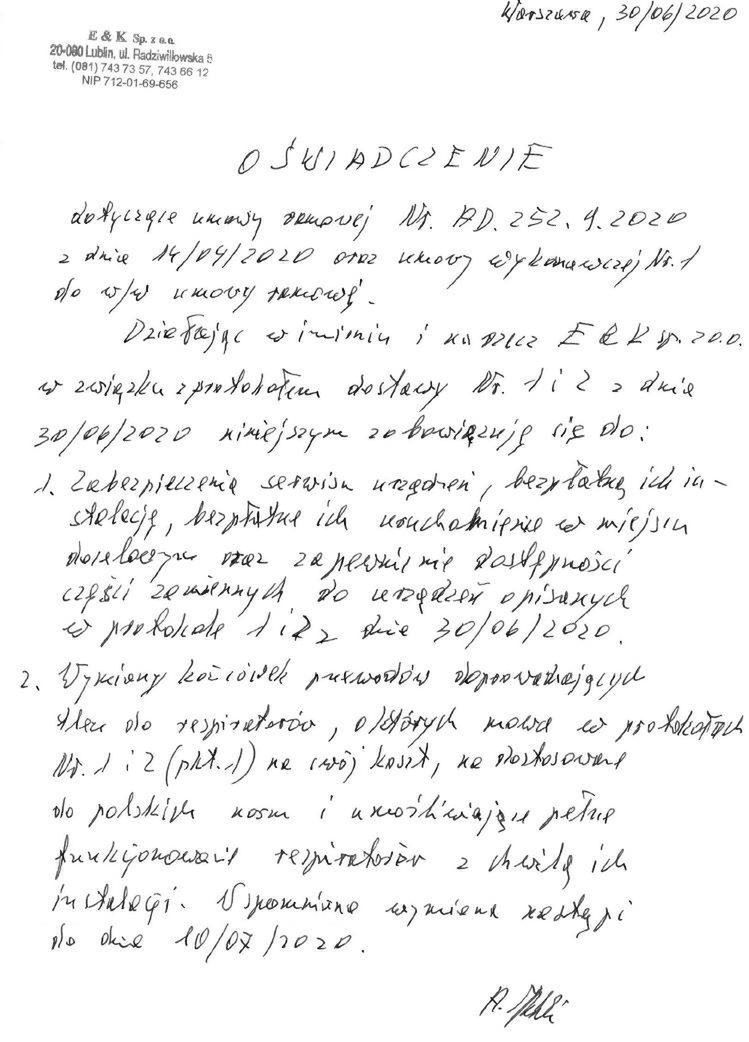 Warszawa, 30/06/2020
E & K Sp. z o.o.
20-080 Lublin, ul. Radziwiłłowska 5
tel. (081) 743 73 57, 743 66 12
NIP 712-01-69-656
OŚWIADCZENIE
dotyczące umowy ramowej Nr. AD.252.9.2020
z dnia 14/04/2020 oraz umowy wykonawczej Nr. 1
do w/w umowy ramowej.
Działając w imieniu i na rzecz E & K sp. z o.o.
w związku z protokołem dostawy Nr. 1 i 2 z dnia
30/06/2020 niniejszym zobowiązuję się do:
1. Zabezpieczenia serwisu urządzeń, bezpłatną ich in-
stalację, bezpłatne ich uruchomienie w miejscu
docelowym oraz zapewnienie dostępności
części zamiennych do urządzeń opisanych
w protokole 1 i 2 z dnia 30/06/2020.
2. Wymiany końcówek przewodów doprowadzających
tlen do respiratorów, o których mowa w protokołach
Nr. 1 i 2 (pkt. 1) na swój koszt, na dostosowane
do polskich norm i umożliwiające pełne
funkcjonowanie respiratorów z chwilą ich
instalacji. Wspomniana wymiana nastąpi
do dnia 10/07/2020.
A.